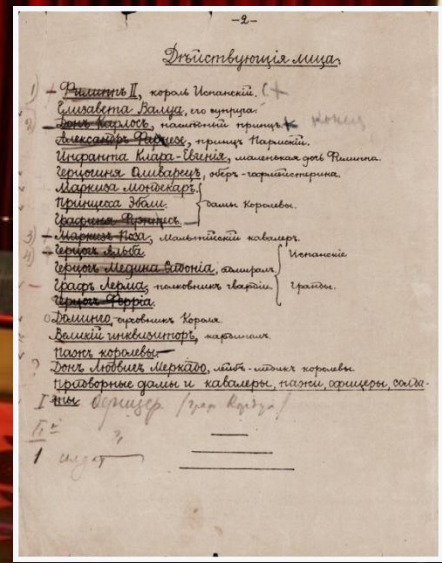 -2-
Дѣйствующія лица.
1) Филиппъ II, король Испанскій.
Елизавета Валуа, его супруга.
2) Донъ Карлосъ, наслѣдный принцъ. конец
Александръ Фарнезе, принцъ Пармскій.
Инфанта Клара-Евгенія, маленькая дочь Филиппа.
Герцогиня Оливарецъ, оберъ-гофмейстерина.
Маркиза Мондекаръ.
Принцесса Эболи. дамы Королевы.
Графиня
3) Маркизъ Поза, мальтійскій кавалеръ.
4) Герцогъ Альба. Испанскіе
Герцогъ Медина Сидонія, адмиралъ.
Графъ Лерма, полковникъ гвардіи. Гранды.
Герцогъ Феррія.
Доминго, духовникъ Короля.
Великій инквизиторъ,
Пажъ королевы.
? Донъ Людвигъ Меркадо, лейбъ-медикъ королевы
Придворные дамы и кавалеры, пажи, офицеры, солда-
ты. I офицер (граф
II
1 солдат